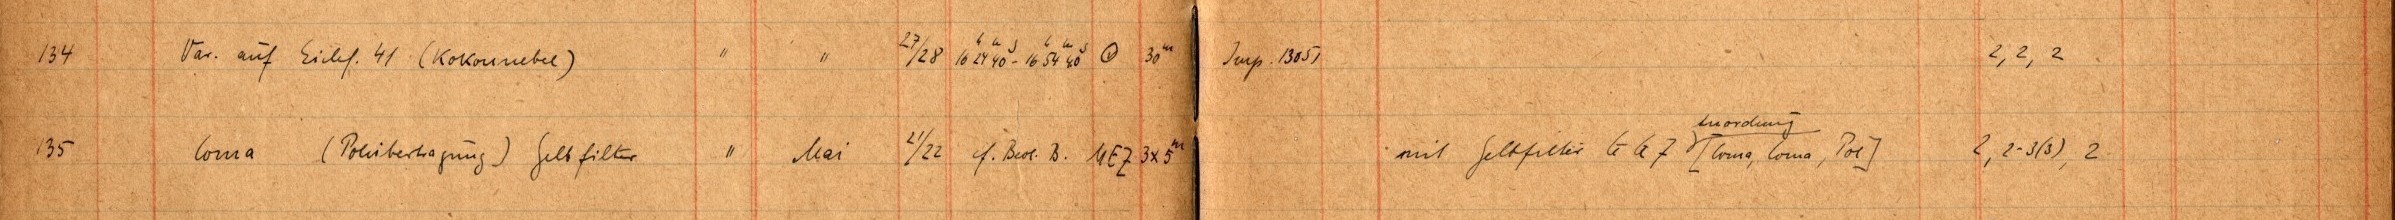 134 Var. auf Eichf. 41 (Kokonnebel) " " 27/28 16h 24m 40s - 16h 54m 40s 30m Imp. 13051 2, 2, 2
Anordnung
135 Coma (Polübertragung) Gelbfilter " Mai 21/22 cf. Beob. B. MEZ 3x5m mit Gelbfilter [Coma, Coma, Pol] 2, 2-3(3), 2